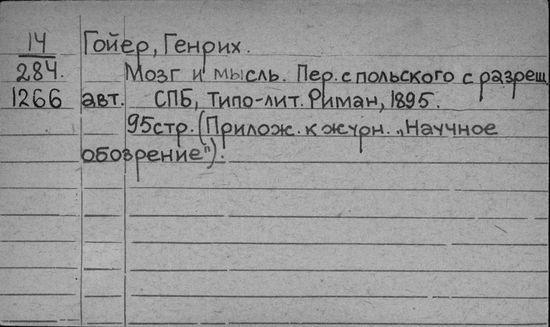 14 Гойер, Генрих.
284. Мозг и мысль. Пер. с польского с разреш.
1266 авт. СПБ, Типо-лит. Риман, 1895.
95 стр. (Прилож. к журн. „Научное
обозрение").